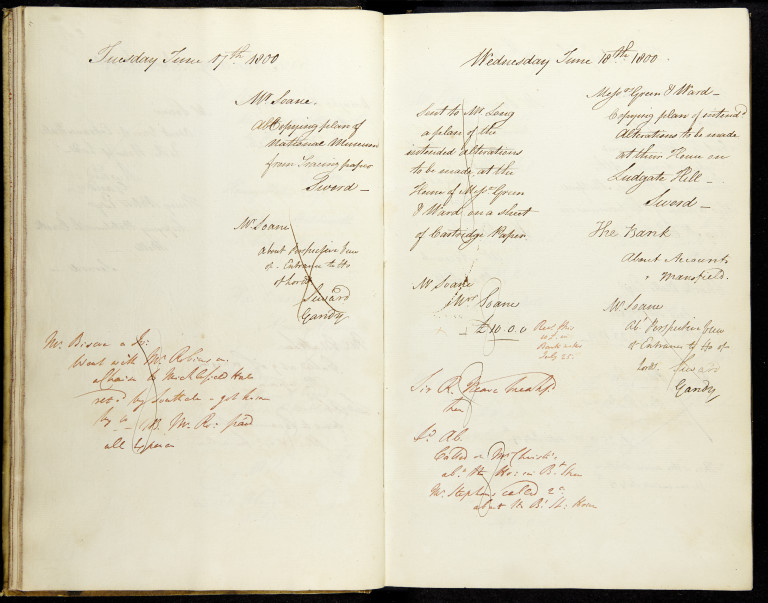 Tuesday June 17th 1800
Mr Soane.
Abt Copying plan of
National Museum
from Tracing paper
Sword —
Mr Soane
about Perspective view
of Entrance to Ho
of Lords
Seward
Gandy
Mr
Went with Mr Robins in
a Chaise to
retd by
by Mr Ro: paid
all
Wednesday June 18th 1800.
Sent to Mr Long
a plan of the
intended alterations
to be made at the
House of Messrs Green
& Ward on a sheet
of Cartridge Paper
Mr Soane
Mrs Soane
£10.0.0
Recd this
July 25.
Sir R. Neave
Called on Mr Christie
abt the Ho: in
Mr Stephens called
about the House
Messrs Green & Ward —
Copying plan of intend'd
Alterations to be made
at their House on
Ludgate Hill —
Sword —
The Bank
About Accounts
Mansfield.
Mr Soane
Abt Perspective view
of Entrance to Ho of
Lords. Seward
Gandy